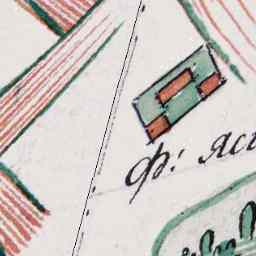 ф: яс